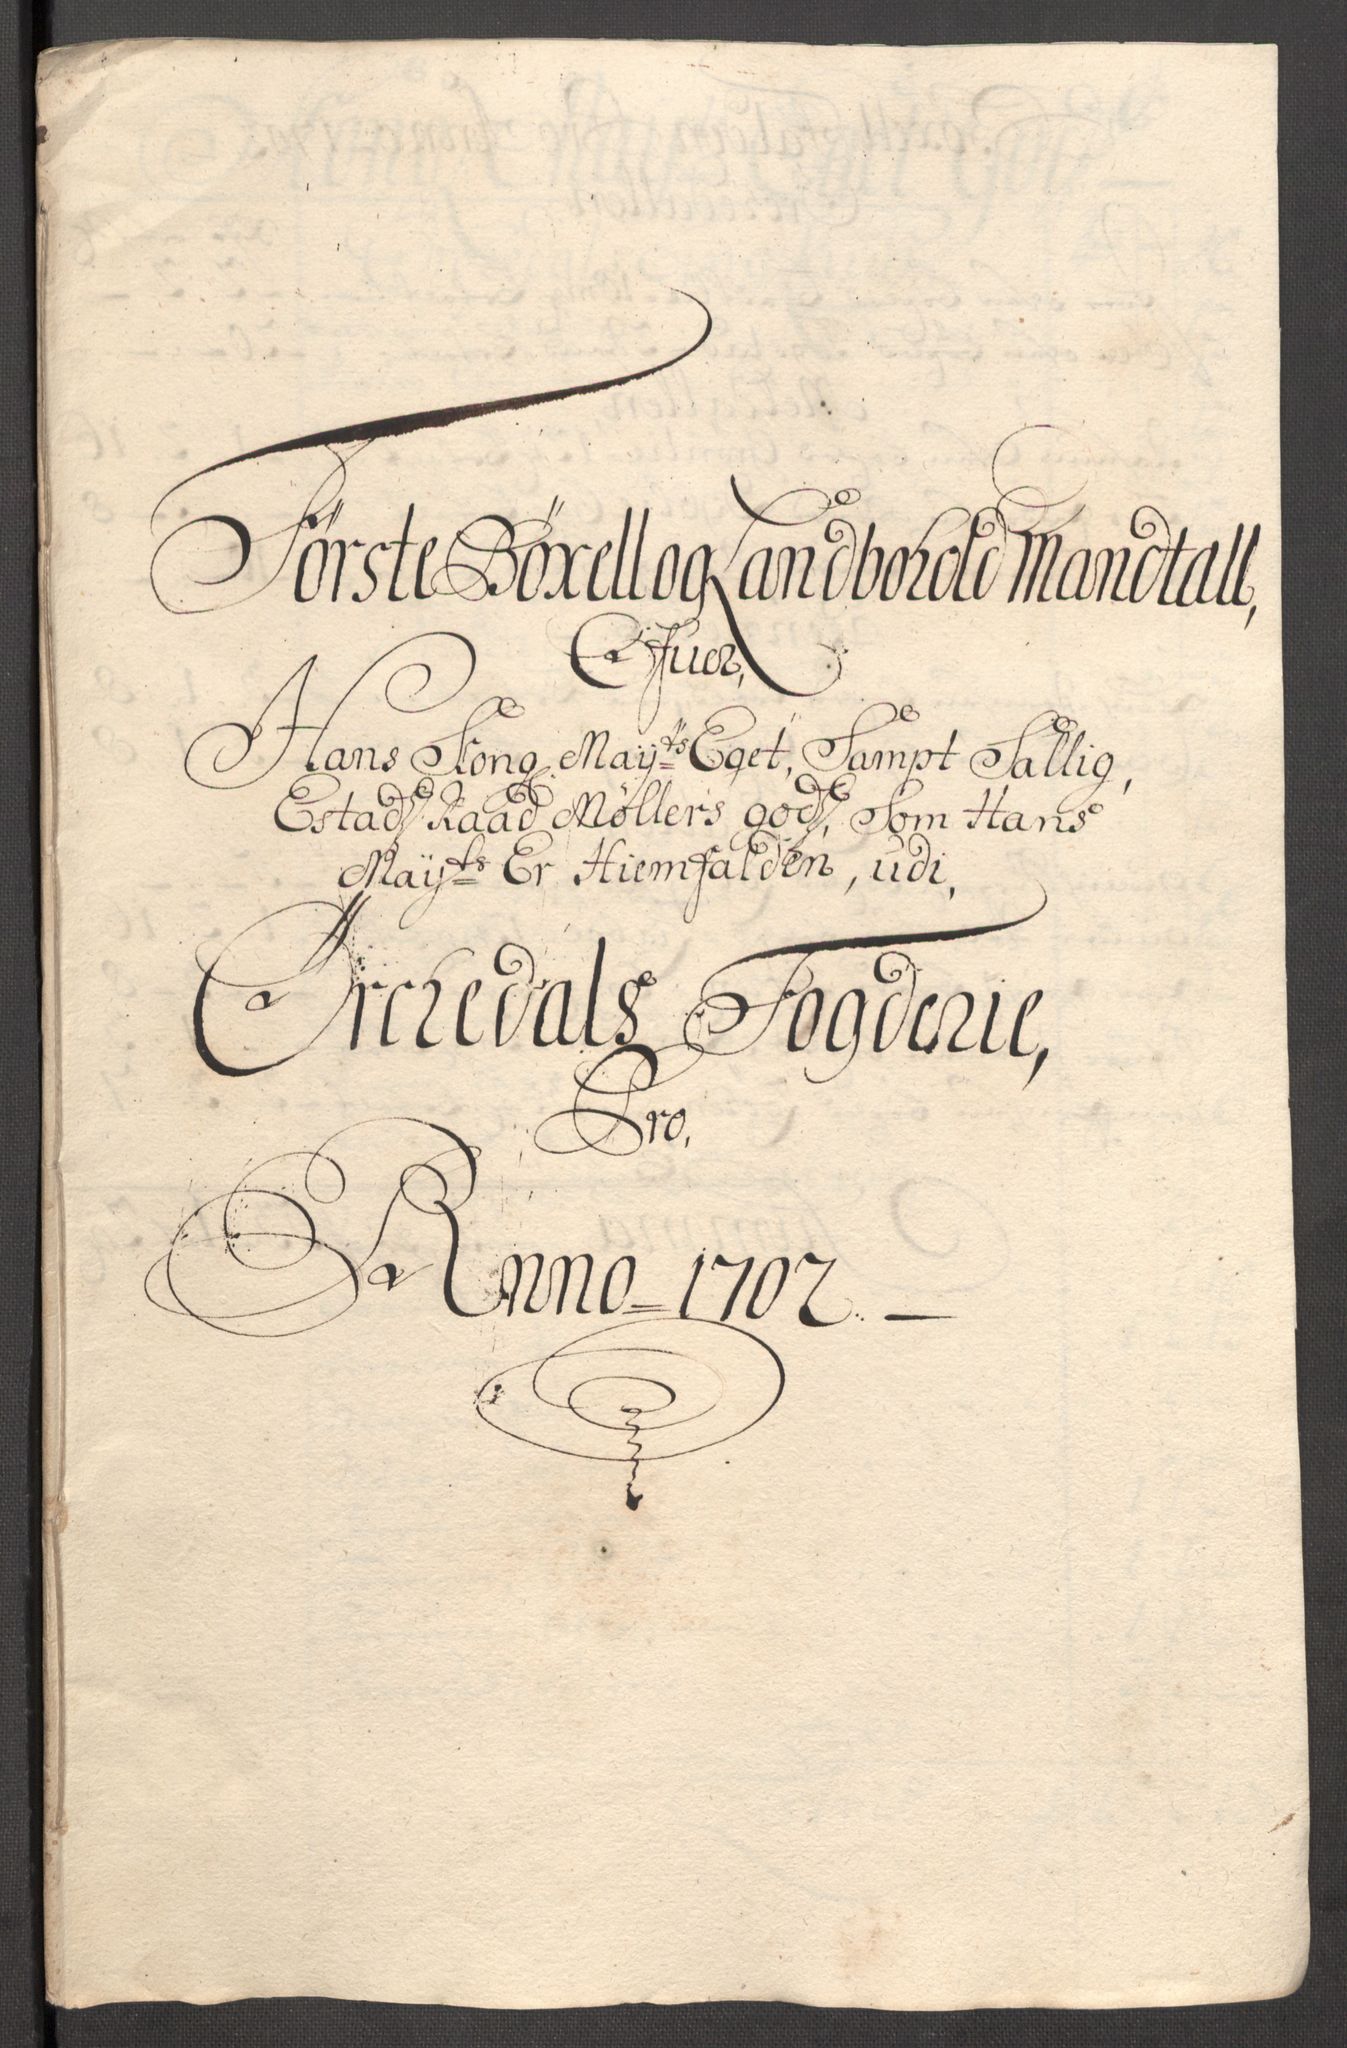 Første Böxell og Landbohold Mandtall,
Ofuer,
Hans Kong. Mayts Eget, Sampt Sallig,
Estads Raad Møllers gods, Som Hans
Mayts Er Hiemfalden, udi,
Orchedals Fogderie,
Pro,
Anno 1702.